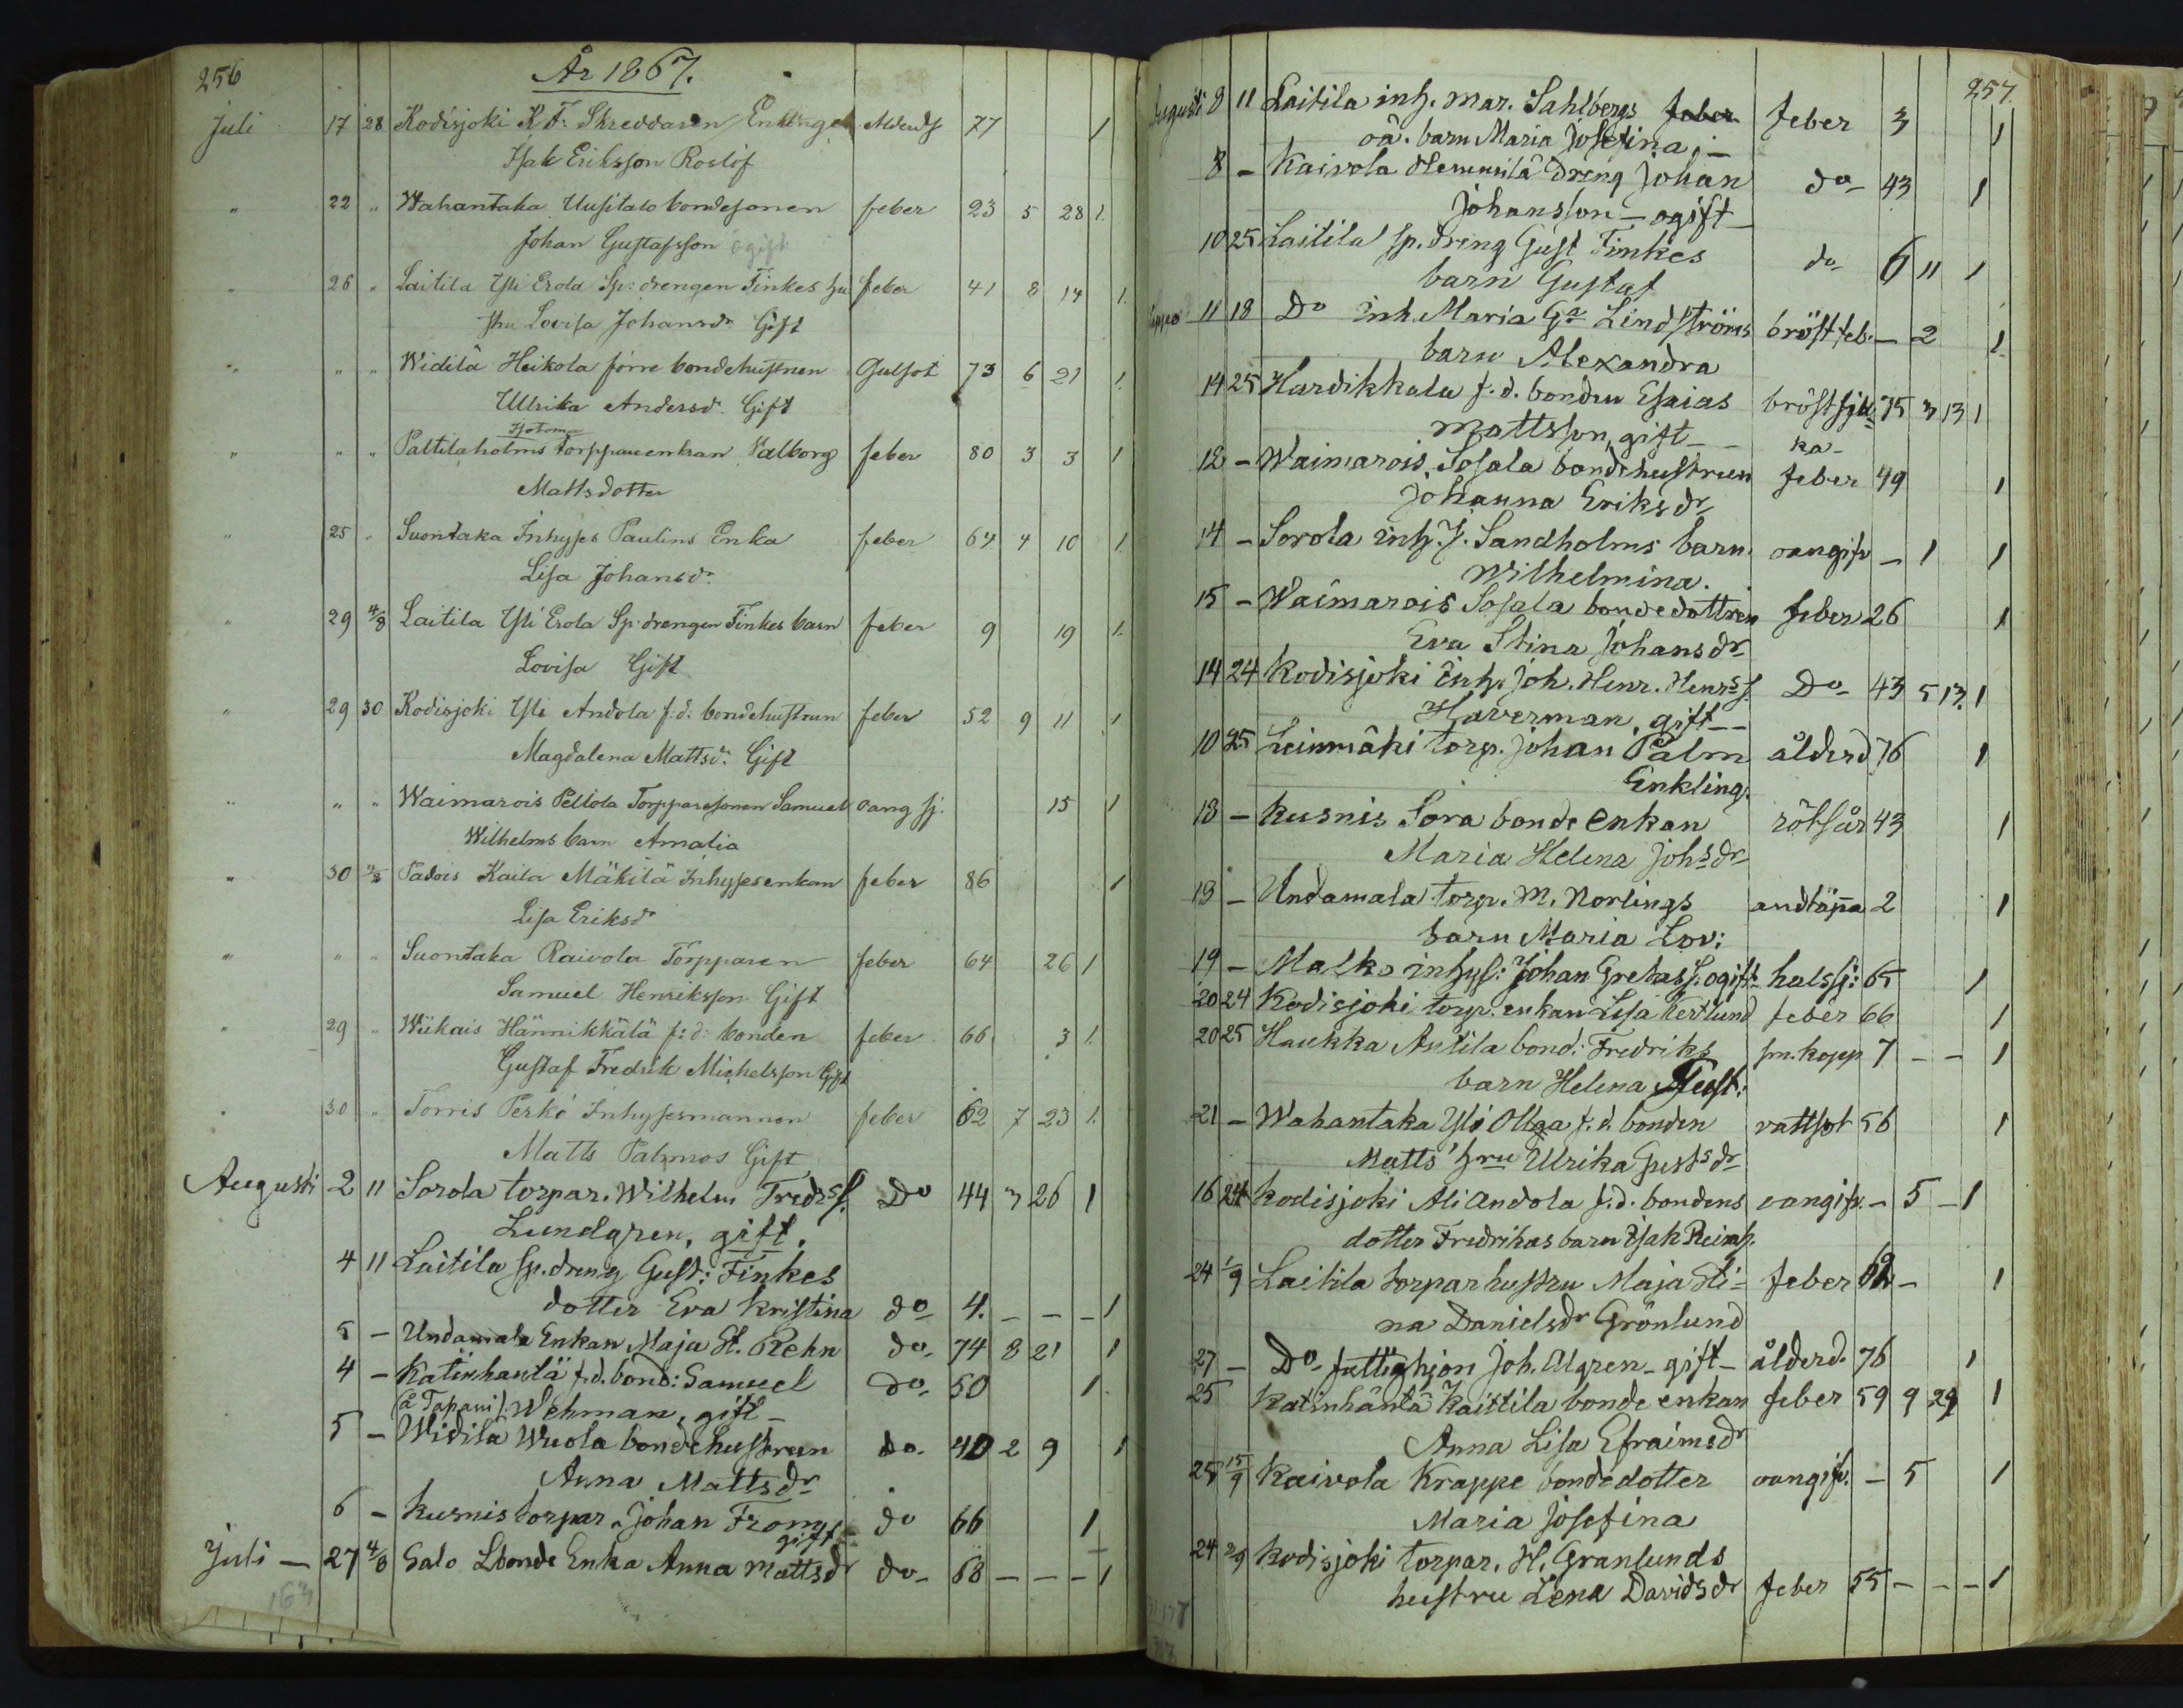 256
År 1867.
Juli 17 28 Kodisjoki K. F. Skreddaren Enklingen Ålderds 77 1
Isak Eriksson Roslöf
" 22 " Wahantaka Uusitalo bondesonen feber 23 5 28 1
Johan Gustafsson ogift
" 26 " Laitila Yli Erola Sp: drengen Finkes hu feber 41 8 14 1
stru Lovisa Johansdr Gift
" " " Widilä Heikola förre bondehustrun Gulsot 73 6 21 1
Ulrika Andersdr. Gift
" " " Paltilaholms torpareenkan Valborg feber 80 3 3 1
Mattsdotter
" 25 " Suontaka Inhyses Paulins Enka feber 64 4 10 1
Lisa Johansdr.
" 29 4/8 Laitila Yli Erola Sp: drengen Finkes barn feber 9 19 1
Lovisa Gift
" 29 30 Kodisjoki Yli Andola f: d: bondehustrun feber 52 9 11 1
Magdalena Mattsdr. Gift
" " " Waimarois Peltola Torpparesonen Samuel oang sj. 15 1
Wilhelms barn Amalia
" 30 Padois Kaila Mäkilä Inhysesenkan feber 86 1
Lisa Eriksdr
" " " Suontaka Raivola Torpparen feber 64 26 1
Samuel Henriksson Gift
" 29 " Wiikais Hännikkälä f: d: bonden feber 66 3 1
Gustaf Fredrik Michelsson Gift
" 30 " Torris Perkö Inhysesmannen feber 62 7 23 1
Matts Palmros Gift
Augusti 2 11 Sorola torpar. Wilhelm Fredrss. Do 44 3 26 1
Lundgren, gift.
4 11 Laitila sp. dreng Gust: Finkes
dotter Eva Kristina do 4. - - - 1
5 - Undamala Enkan Maja St. Rehn do- 74 8 21 1
4 - Katinhäntä f. d. bond: Samuel do- 50 1
(å Tapani) Wehman, gift -
5 - Widilä Wuola bondehustrun do- 40 2 9 1
Anna Mattsdr
6 - Kusnis torpar. Johan From do 66 1
gift
Juli - 27 4/8 Salo Lbonde Enka Anna Mattsdr do- 68 - - - 1
163
257
Augusti 8 11 Laitila inh. mar. Sahlbergs feber feber 3 1
oä. barn Maria Josefina. -
8 - Kaivola Hemmilä dreng Johan do- 43 1
Johansson - ogift
10 25 Laitila sp. dreng Gust Finkes do- 6 11 1
barn Gustaf
11 18 Do inh. Maria Ga Lindströms bröstfeb. - 2 1
barn Alexandra
14 25 Hardikkala f. d. bonden Esaias bröstsju- 75 3 13 1
Mattsson, gift - ka-
12 - Waimarois Sosala bondehustrun feber 49 1
Johanna Eriksdr
14 - Sorola inh. J. Sandholms barn oangifv - 1 1
Wilhelmina.
15 - Waimarois Sosala bondedottren feber 26 1
Eva Stina Johansdr
14 24 Kodisjoki inh. Joh. Henr. Henrss. Do- 43 5 13 1
Haverman, gift -
10 25 Leinmäki torp. Johan Palm ålderd. 76 1
Enkling.
18 - Kusnis Sora bonde enkan rötsår 43 1
Maria Helena Johsdr
18 - Undamala torp. M. Norlings andtäpa 2 1
barn Maria Lov:
19 - Malko inhys: Johan Grekas s. ogift- halssj: 65 1
20 24 Kodisjoki torp. enkan Lisa Kertlund feber 66 1
20 25 Haukka Antila bond: Fredriks sm. kopp 7 - - 1
barn Helena Just:
21 - Wahantaka Yli Olla f. d. bonden vattsot 56 1
Matts' hru Ulrika Gustsdr
16 24 Kodisjoki Ali Andola f. d. bondens oangifv. - 5 - 1
dotter Fredrikas barn Isak Reinh.
24 1/9 Laitila torparhustru Maja Sti- feber 62 - 1
na Danielsdr Grönlund
27 - Do- fattighjon Joh. Algren - gift - ålderd. 76 1
25 Katinhäntä Kaittila bonde enkan feber 59 9 29 1
Anna Lisa Efraimsdr
25 15/9 Kaivola Krappe bondedotter oangifv. - 5 1
Maria Josefina
24 2/9 Kodisjoki torpar. H. Granlunds
hustru Lena Davidsdr feber 55 - - - 1